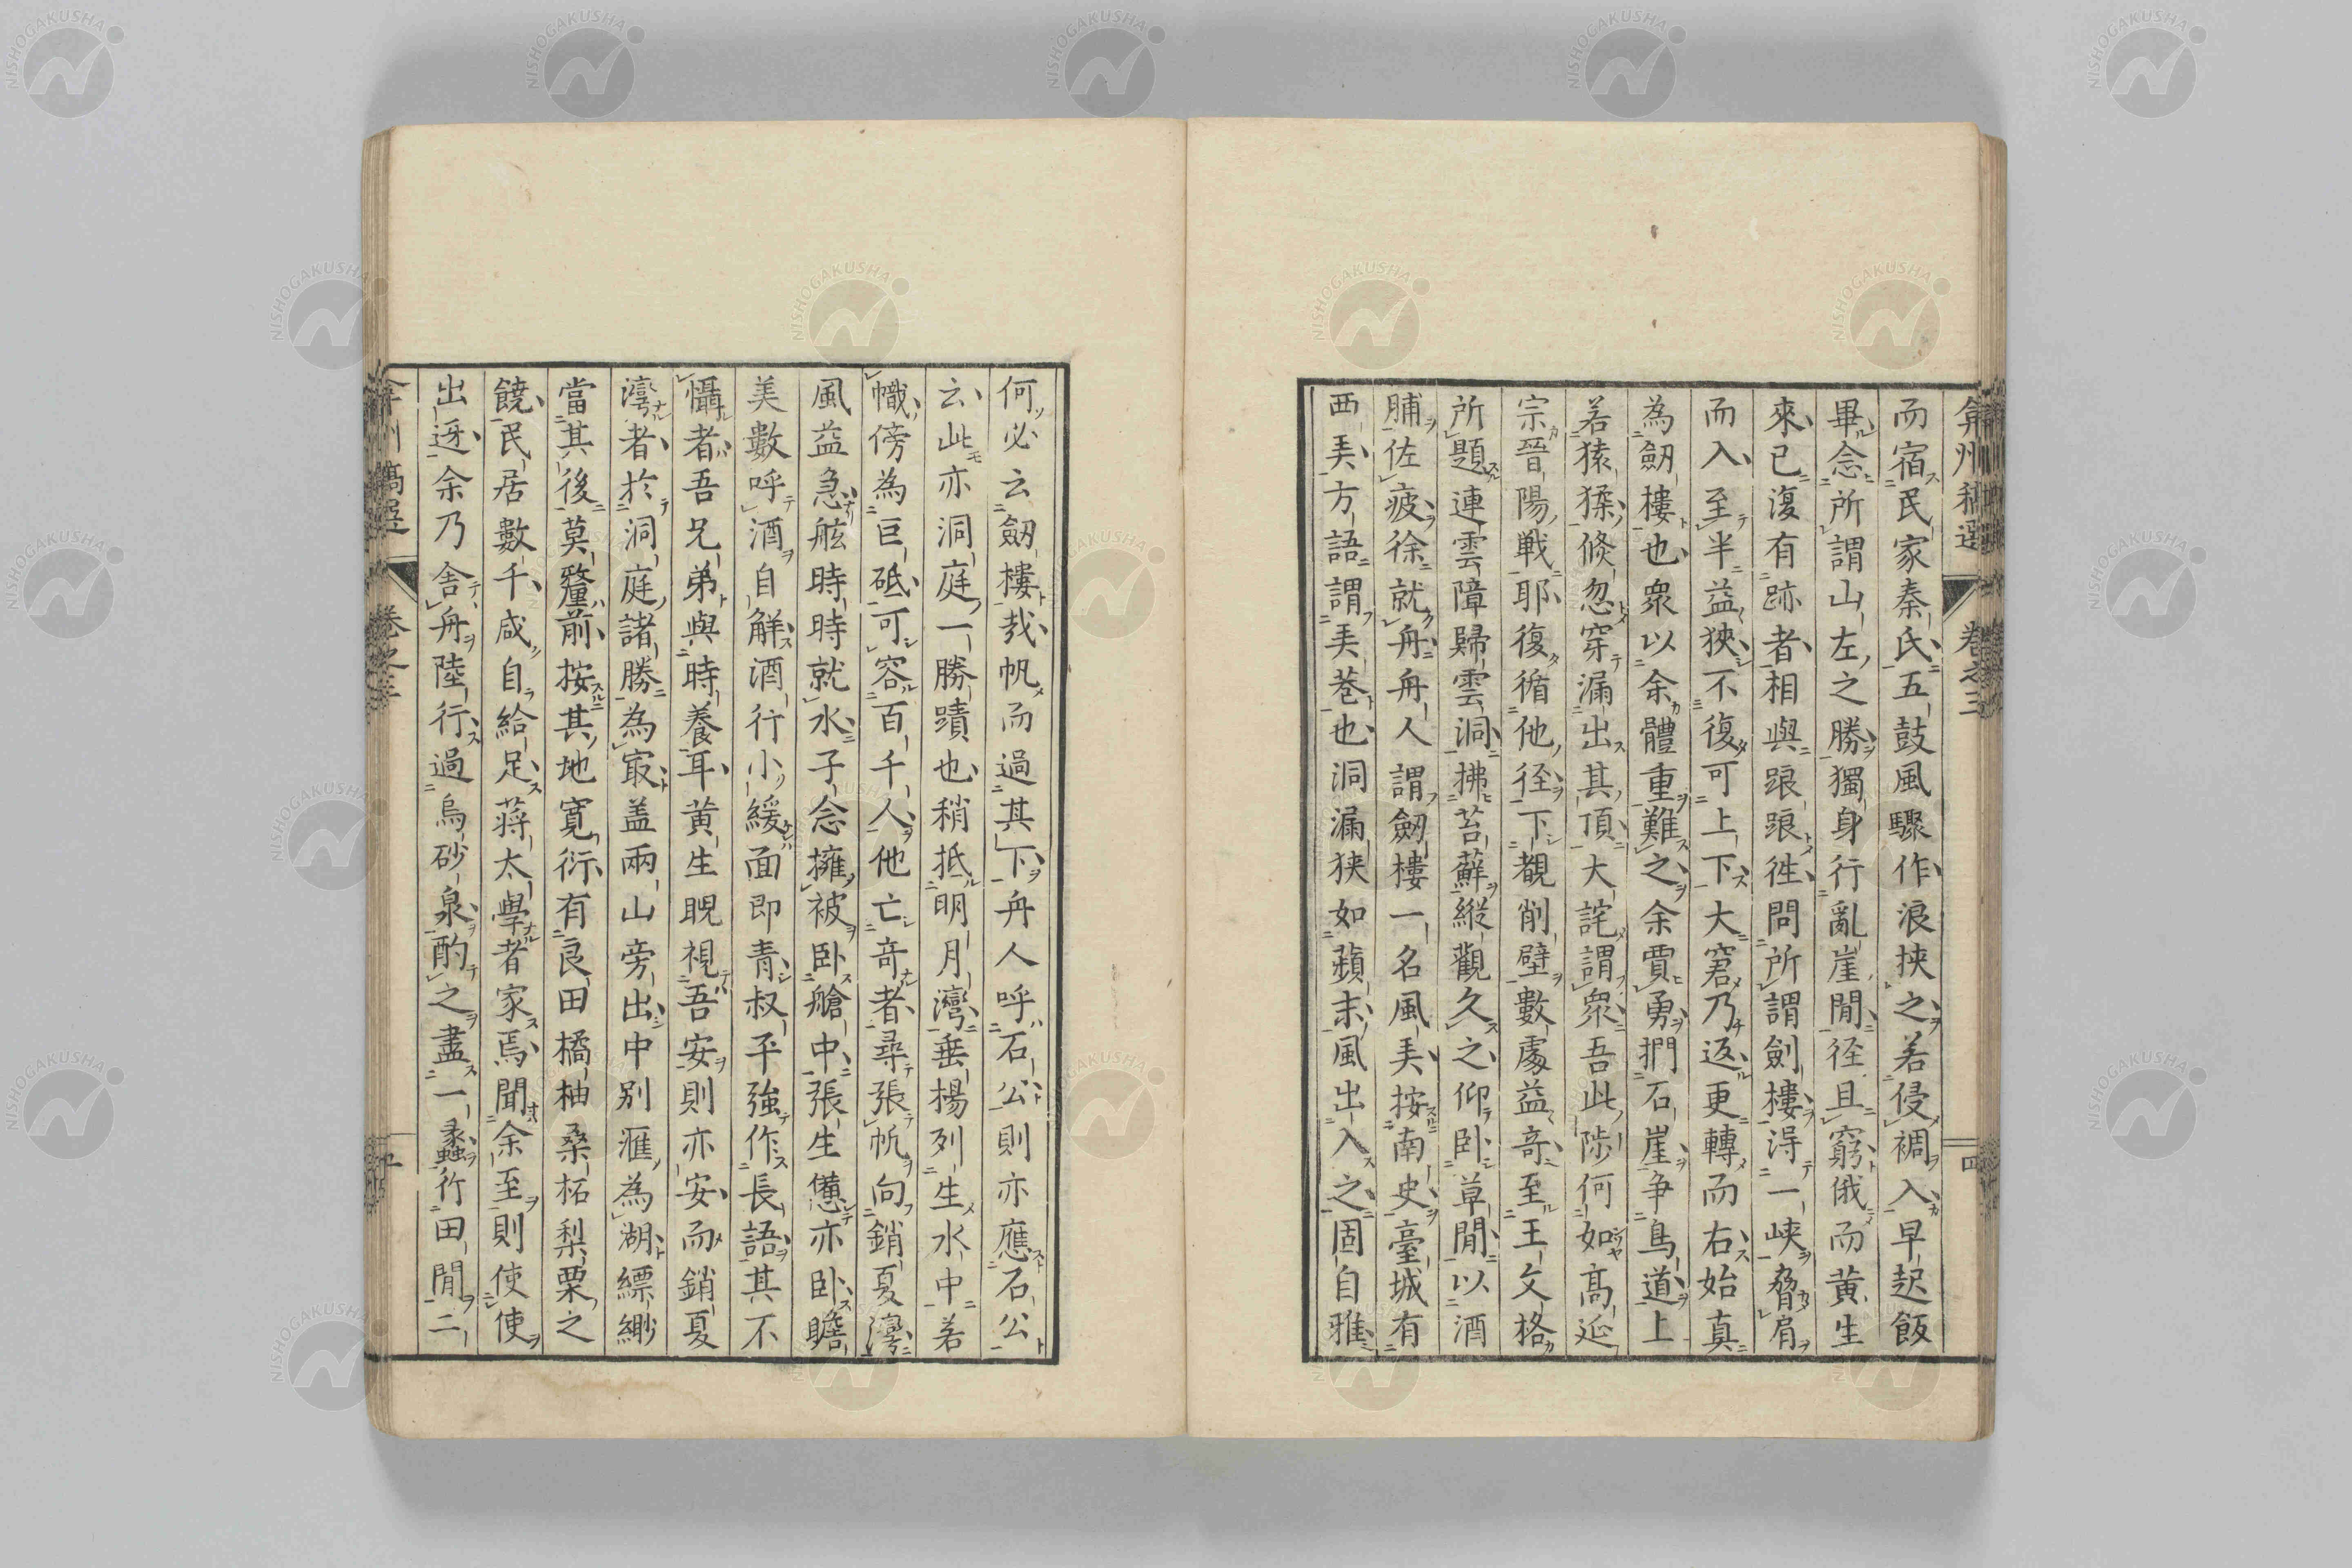 弇州稿選 卷之三 四
而宿民家秦氏五鼓風驟作浪挾之若侵裯入早起飯
畢念所謂山左之勝獨身行亂崖間徑且窮俄而黃生
來已復有跡者相與踉踉徃問所謂劍樓淂一峽脅肩
而入至半益狹不復可上下大窘乃返更轉而右始真
為劒樓也衆以余體重難之余賈勇捫石崖争鳥道上
若猿猱倐忽穿漏出其頂大詫謂衆吾此陟何如髙延
宗晉陽戦耶復循他徑下覩削壁數處益竒至王文格
所題連雲障歸雲洞拂苔蘚縱觀久之仰卧草間以酒
脯佐疲徐就舟舟人謂劒樓一名風弄按南史臺城有
西弄方語謂弄巷也洞漏狹如蘋末風出入之固自雅
何必云劒樓㦲帆而過其下舟人呼石公則亦應石公
云此亦洞庭一勝蹟也稍抵明月灣垂楊列生水中若
幟傍為巨砥可容百千人他亡竒者尋張帆向銷夏灣
風益急舷時時就水子念擁被卧艙中張生憊亦卧瞻
美數呼酒自解酒行小緩面即青叔平強作長語其不
懾者吾兄弟與時養耳黄生睨視吾安則亦安而銷夏
灣者於洞庭諸勝為㝡盖兩山旁出中别滙為湖縹緲
當其後莫釐前按其地寛衍有良田橘柚桑柘梨栗之
饒民居數千咸自給足蔣太學者家焉聞余至則使使
出迓余乃舍舟陸行過烏砂泉酌之盡一蠡行田間二
弇州稿選 卷之三 五
NISHOGAKUSHA